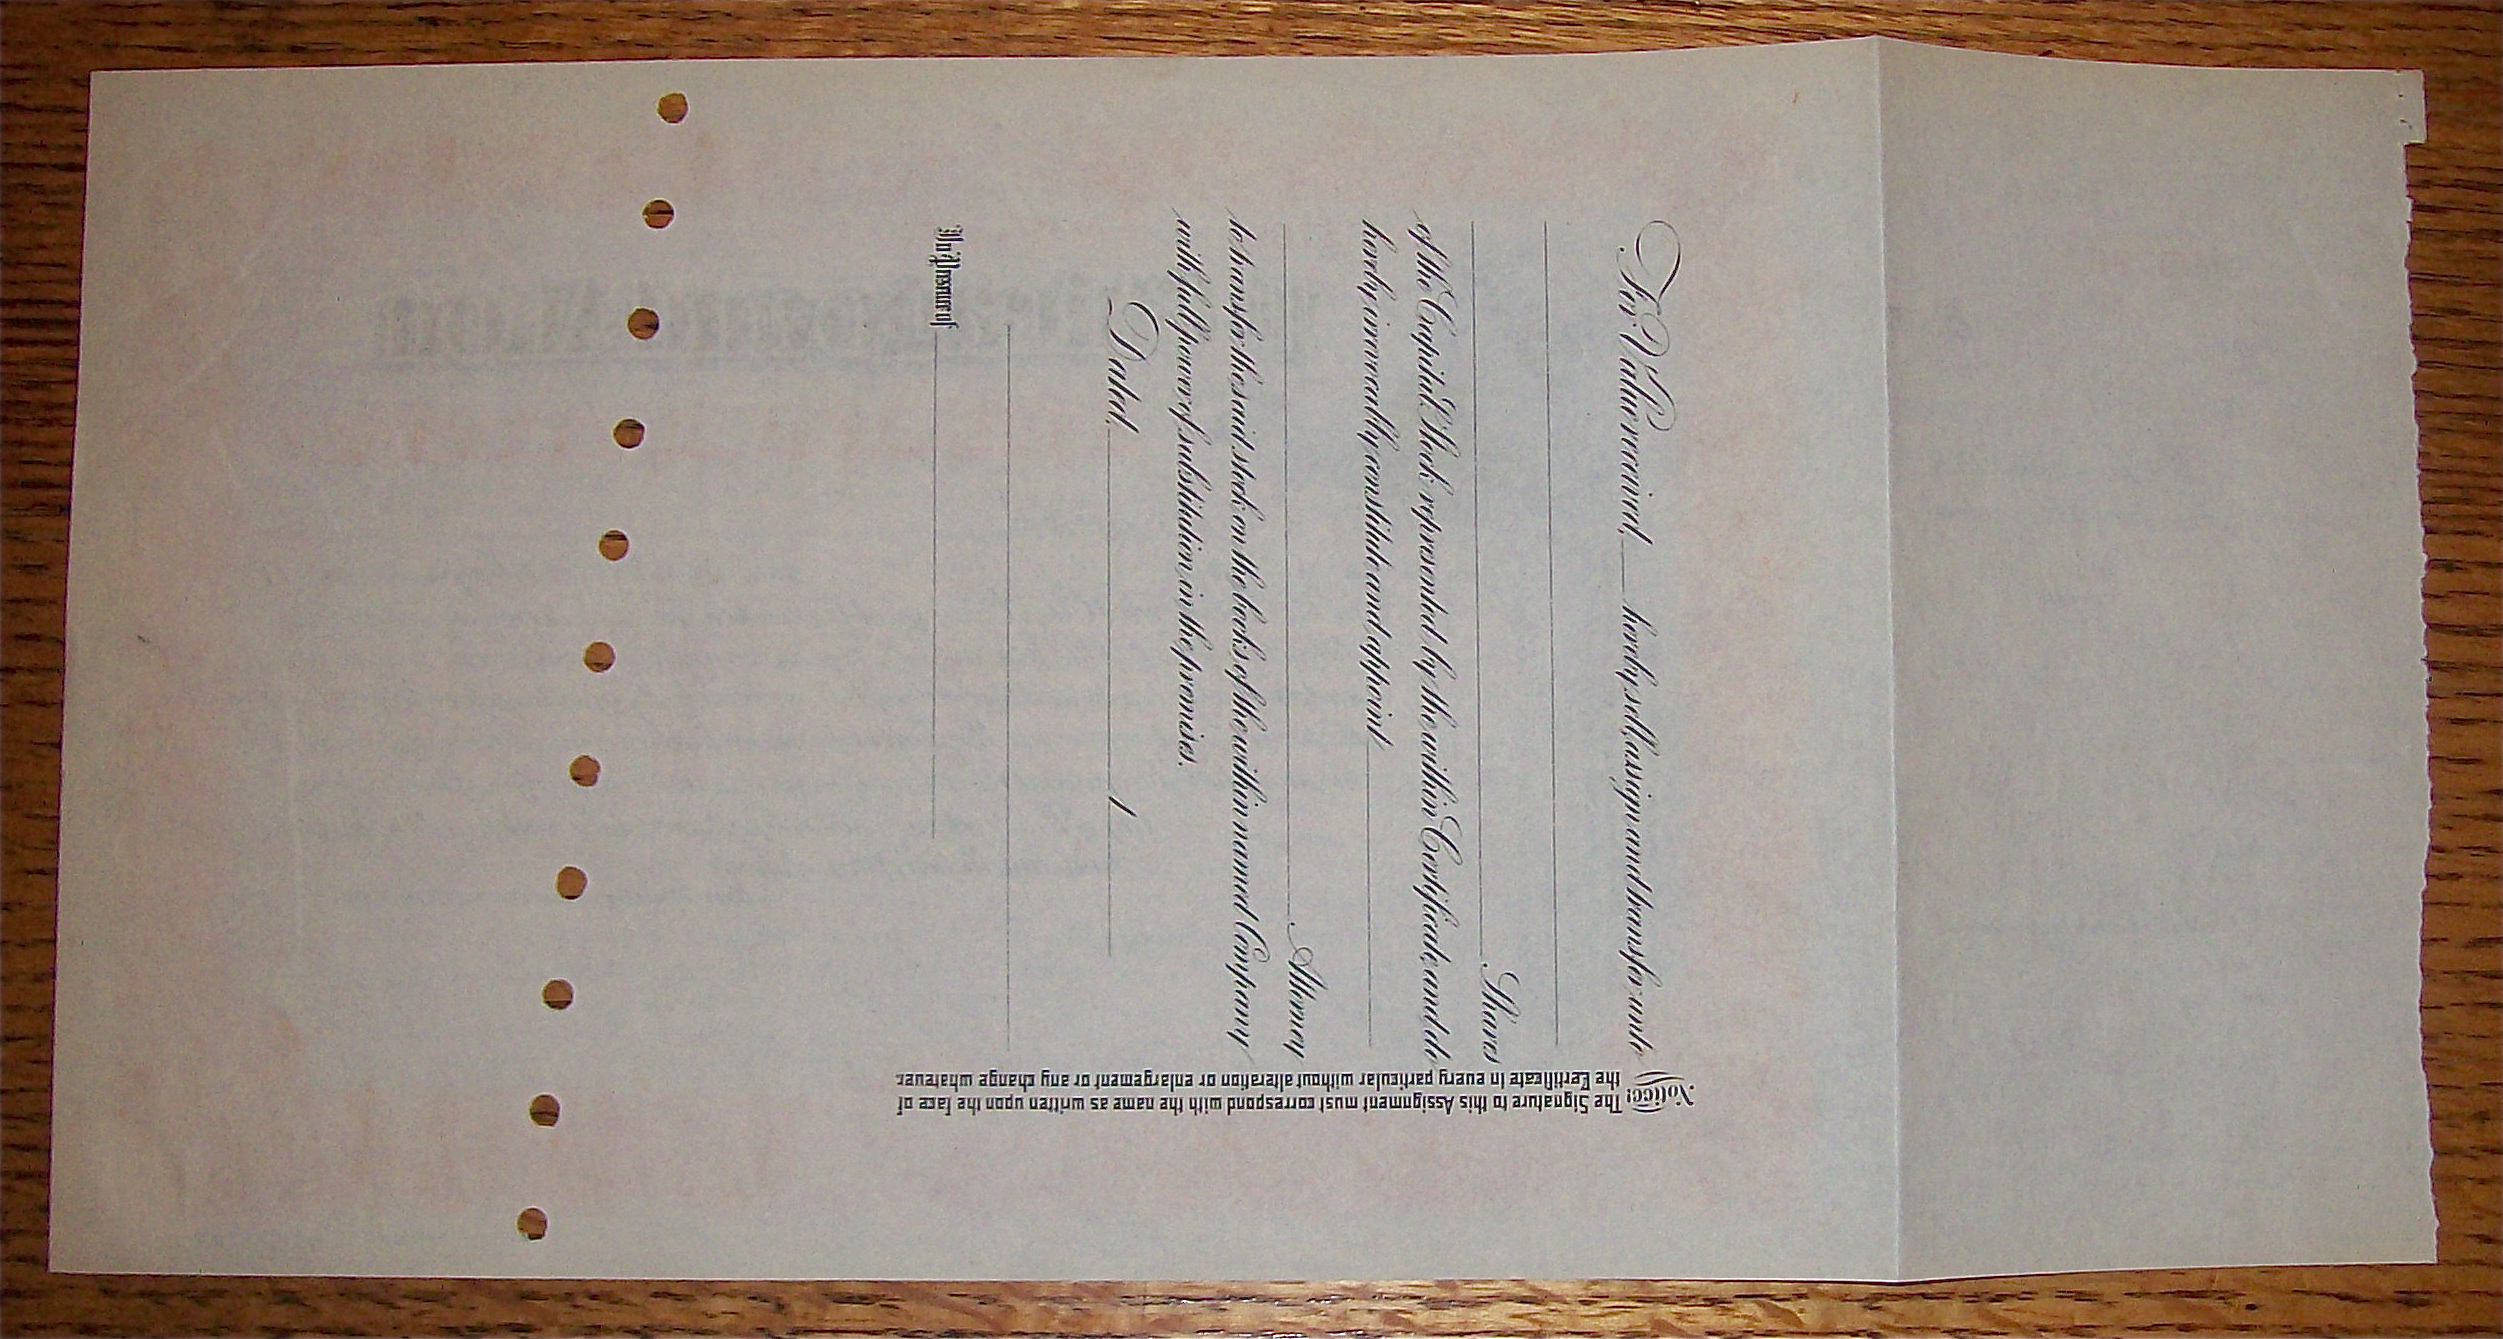 For Value received, hereby sell, assign and transfer unto
Shares
of the Capital Stock represented by the within Certificate, and do
hereby irrevocably constitute and appoint
Attorney
to transfer the said stock on the books of the within named Company
with full power of substitution in the premises.
Dated
1
In Presence of
Notice! The Signature to this Assignment must correspond with the name as written upon the face of
the Certificate in every particular without alteration or enlargement or any change whatever.